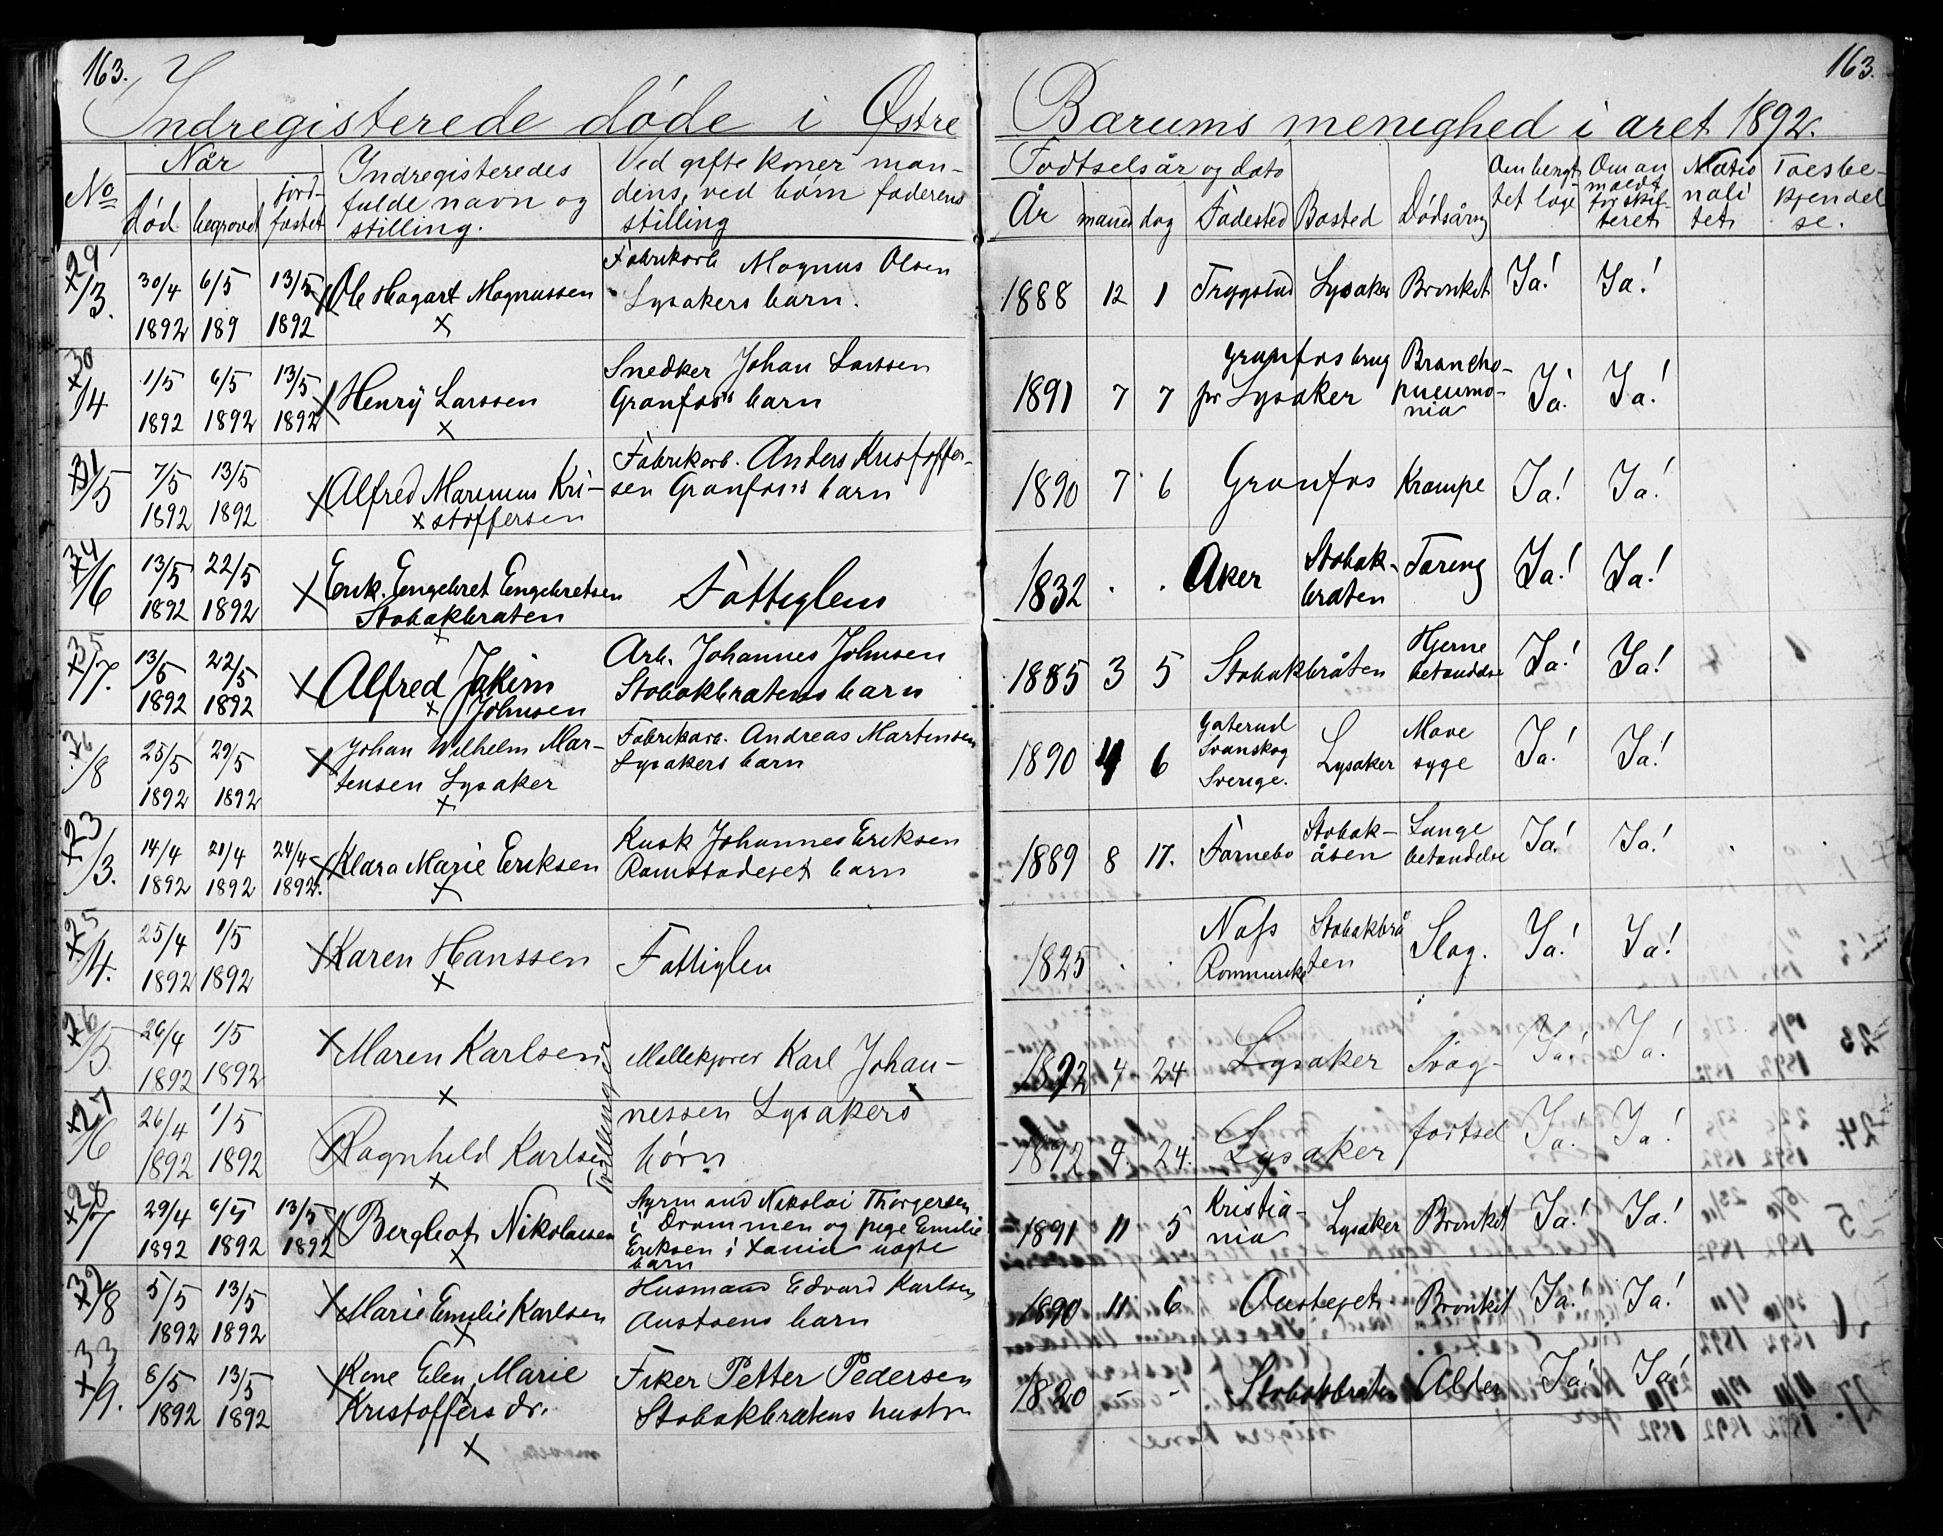 163.
163.
Indregisterede døde i Østre Bærums menighed i aret 1892.
No
Når
død
begravet
jord-
fastet
Indregisteredes
fulde navn og
stilling.
Ved gifte koner man-
dens, ved børn faderens
stilling
Fødtselsår og dato
År
maned
dag
Fødested
Bosted
Dødsårsag
Om benyt-
tet læge
Om an
mældt
for skif-
teret
Natio
nali
tet
Troesbe-
kjendel
se.
29
x/3. 30/4 6/5 13/5 x Ole Hagart Magnussen Fabrikarb Magnus Olsen
1892 189 1892 x Lysakers barn.
1888 12 1 Trygstad Lysaker Bronkit Ja! Ja!
30
x/4 1/5 6/5 13/5 x Henry Larssen Snedker Johan Larssen
1892 1892 1892 x Granfos's barn
1891 7 7 Granfos brug Broncho-
pr Lysaker pneumo-
nia Ja! Ja!
31
x/5 7/5 13/5 x Alfred Marinius Kri- Fabrikarb. Anders Kristoffer-
1892 1892 x stoffersen sen Granfos's barn
1890 7 6 Granfos Krampe Ja! Ja!
34
x/6 13/5 22/5 x Erik Engebret Engebretsen Fattiglem
1892 1892 Stabækbraten
x
1832 . . Aker Stabæk-
braten Tæring Ja! Ja!
35
x/7. 13/5 22/5 x Alfred Jakim Arb. Johannes Johnsen
1892 1892 x Johnsen Stabækbratens barn
1885 3 5 Stabækbråten Hjerne
betændelse Ja! Ja!
36
x/8 25/5 29/5 x Johan Wilhelm Mar- Fabrikarb. Andreas Martensen
1892 1892 tensen Lysaker Lysakers barn
x
1890 4 6 Gaterud
Svanskog
Sverige. Lysaker Mave
syge Ja! Ja!
23
x/3. 14/4 21/4 24/4 x Klara Marie Eriksen Kusk Johannes Eriksen
1892 1892 1892. x Ramstadeget barn
1889 8 17. Farnebo Stabæk-
åsen Lunge
betændelse Ja! Ja!
25
x/4. 25/4 1/5 x Karen Hanssen Fattiglem
1892 1892 x
1825 . . Næss
Rommerike Stabækbrå
ten Slag. Ja! Ja!
26
x/5 26/4 1/5 x Maren Karlsen Møllekjører Karl Johan-
1892 1892 x
1892 4 24 Lysaker Svag- Ja! Ja!
27
x/6 26/4 1/5 x Ragnhild Karlsen nessen Lysakers
1892 1892 x børn
Tvillinger
1892 4. 24. Lysaker fødtsel Ja! Ja!
28
x/7 29/4 6/5 13/5 x Bergliot Nikolaisen Styrmand Nikolai Thorgersen
1892 1892 1892 x i Drammen og pige Emilie
Eriksen i Xania uægte
barn
1891 11 5 Kristia-
nia Lysaker Bronkit Ja! Ja!
32
x/8 5/5 13/5 x Marie Emilie Karlsen Husmand Edvard Karlsen
1892 1892 x Austøens barn
1890 11 6 Bronkit Ja! Ja!
33
x/9. 8/5 13/5 x Kone Elen Marie Fisker Petter Pedersen
1892 1892 Kristoffers dr. Stabækbratens hustr
x
1820 - - Stabækbraten Alder Ja! Ja!